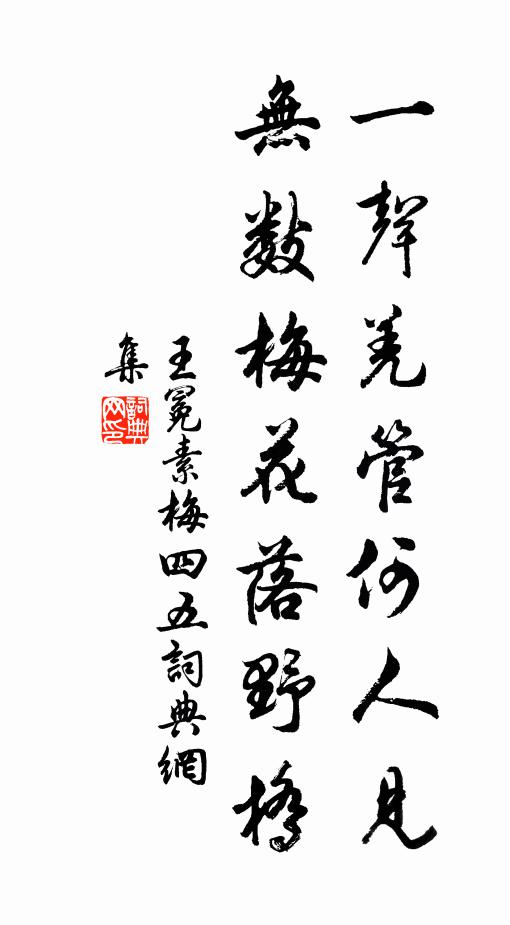 一聲羌管何人見
無數梅花落野橋
王冕素梅四五詞典網
集
詞典網印